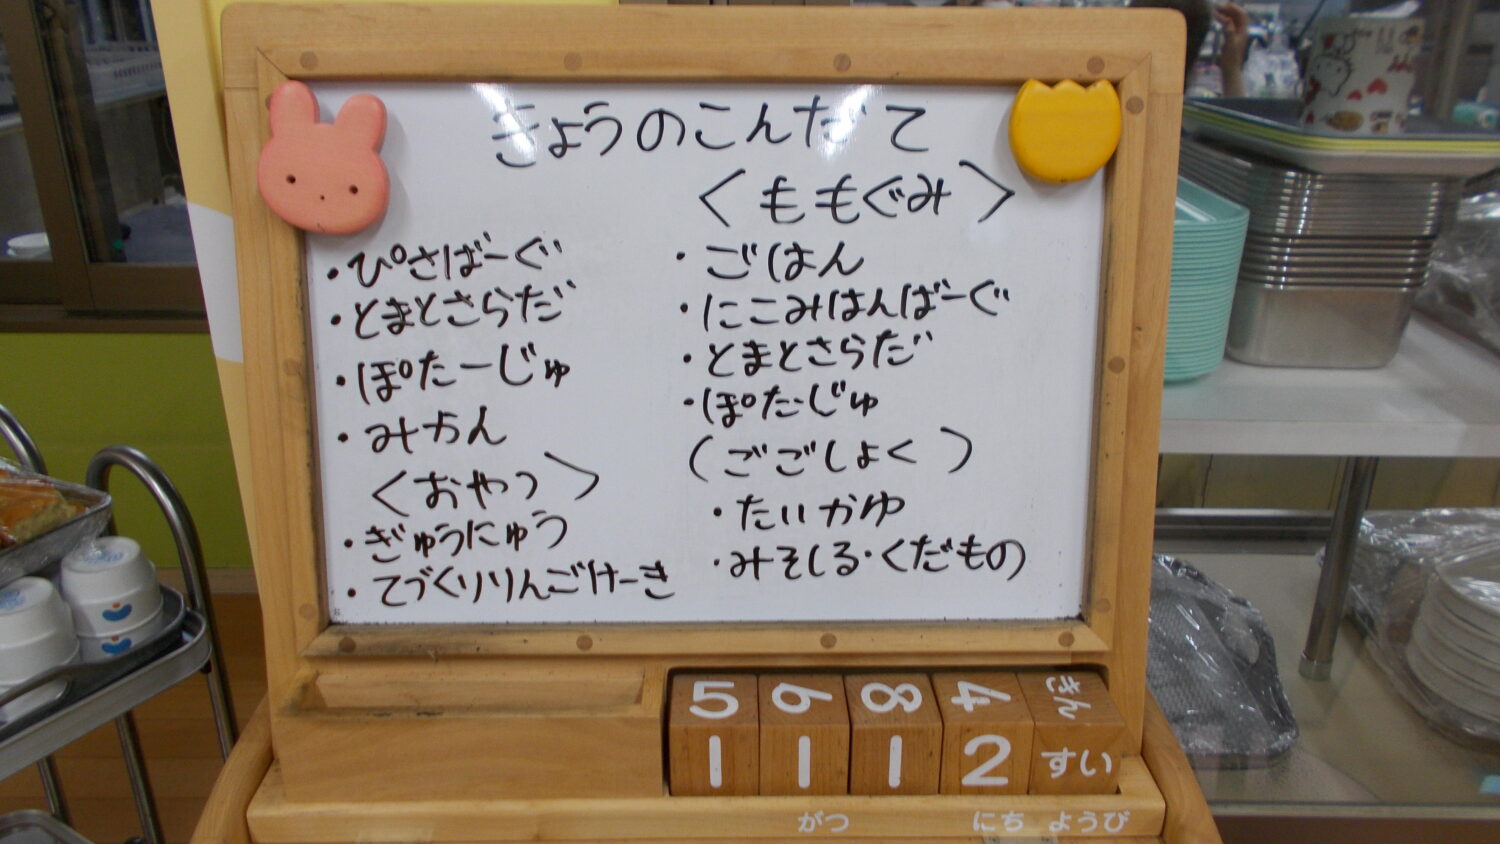 きょうのこんだて
・ぴさばーぐ
・とまとさらだ
・ぽたーじゅ
・みかん
<おやつ>
・ぎゅうにゅう
・てづくりりんごけーき
<ももぐみ>
・ごはん
・にこみはんばーぐ
・とまとさらだ
・ぽたーじゅ
(ごごしょく)
・たいかゆ
・みそしる・くだもの
5 6 8 4 きん
1 1 1 2 すい
がつ にち ようび